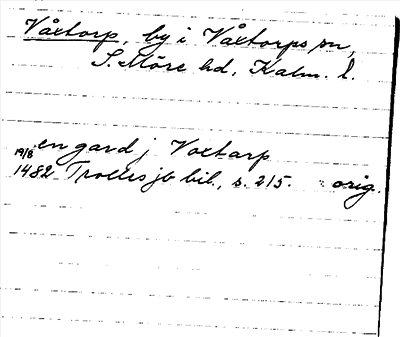 Våxtorp, by i Våxtorps sn,
S. Möre hd, Kalm. l.
en gard j Voxtarp
19/8 1482 Trolles jb bil., s. 215. orig.